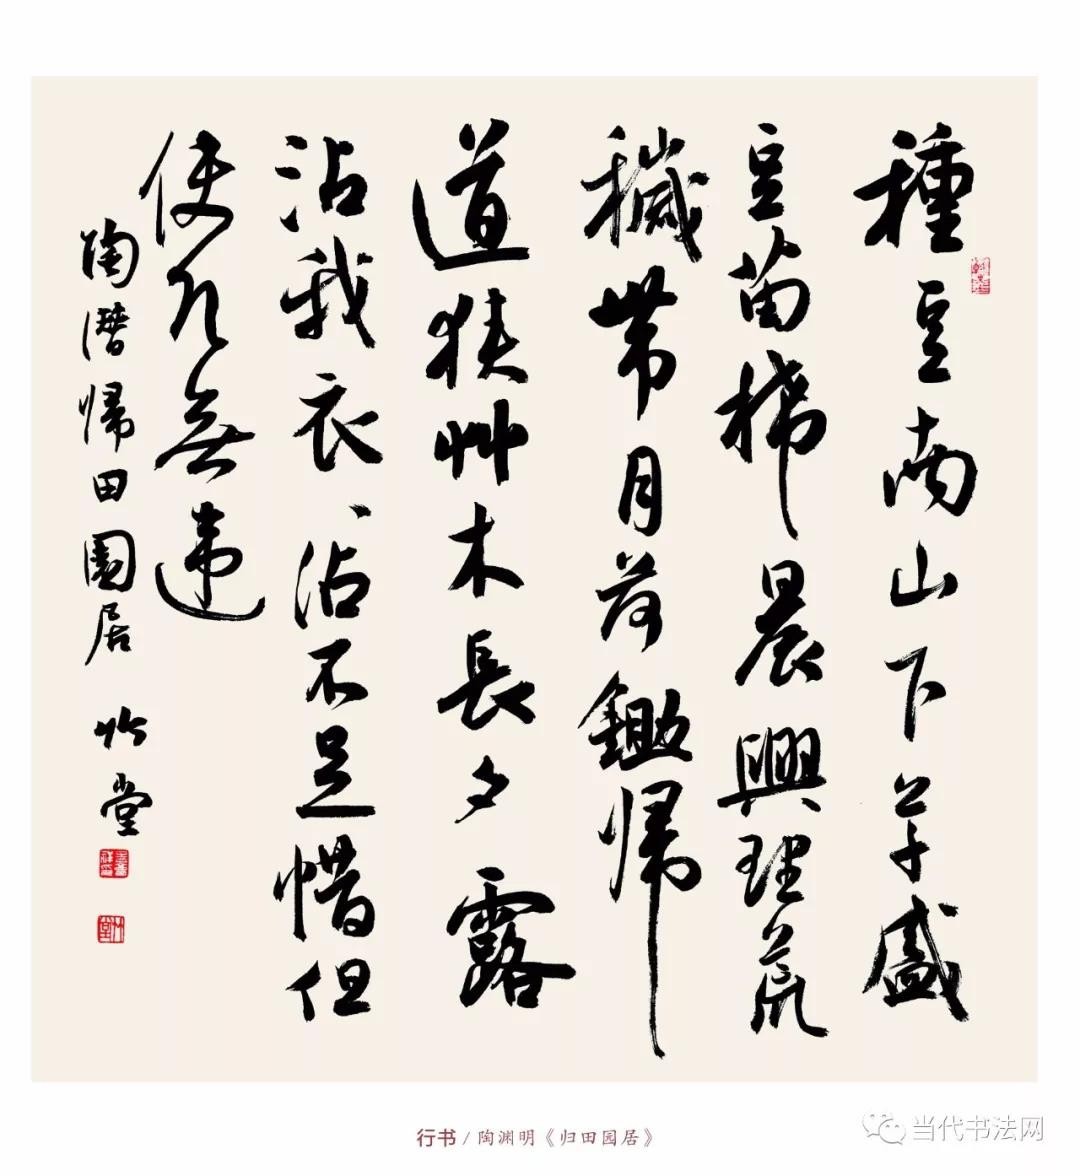 種豆南山下草盛
豆苗稀晨興理荒
穢帶月荷鋤歸
道狹艸木長夕露
沾我衣、沾不足惜但
使願無違
陶潛歸田園居 竹堂
行书 / 陶渊明《归田园居》
当代书法网